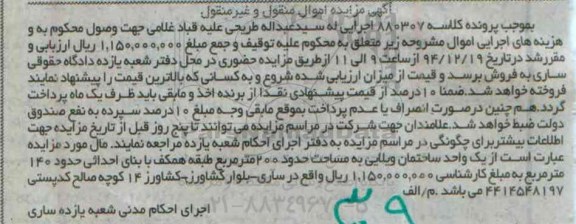 آگهی مزایده اموال منقول و غیرمنقول
بموجب پرونده کلاسه ۸۸۰۳۰۷ اجرایی له سیدعبداله طریحی علیه قباد غلامی جهت وصول محکوم به و
هزینه های اجرایی اموال مشروحه زیر متعلق به محکوم علیه توقیف و جمع مبلغ ۱,۱۵۰,۰۰۰,۰۰۰ ریال ارزیابی و
مقرر شد در تاریخ ۹۴/۱۲/۱۹ از ساعت ۹ الی ۱۱ از طریق مزایده حضوری در محل دفتر شعبه یازده دادگاه حقوقی
ساری به فروش برسد و قیمت از میزان ارزیابی شده شروع و به کسانی که بالاترین قیمت را پیشنهاد نمایند
فروخته خواهد شد. ضمنا ۱۰ درصد از قیمت پیشنهادی نقدا از برنده اخذ و مابقی باید ظرف یک ماه پرداخت
گردد. هم چنین در صورت انصراف یا عدم پرداخت بموقع مابقی وجه مبلغ ۱۰ درصد سپرده به نفع صندوق
دولت ضبط خواهد شد. علامندان جهت شرکت در مراسم مزایده می توانند تا پنج روز قبل از تاریخ مزایده جهت
اطلاعات بیشتر برای چگونگی در مراسم مزایده به دفتر اجرای احکام شعبه یازده مراجعه نمایند. مال مورد مزایده
عبارت است از یک واحد ساختمان ویلایی به مساحت حدود ۲۰۰ مترمربع طبقه همکف با بنای احداثی حدود ۱۴۰
مترمربع به مبلغ کارشناسی ۱,۱۵۰,۰۰۰,۰۰۰ ریال واقع در ساری-بلوار کشاورز-کشاورز ۱۴ کوچه صالح کدپستی
۴۴۱۴۵۴۸۱۹۷ می باشد. م/الف
۳۹
اجرای احکام مدنی شعبه یازده ساری